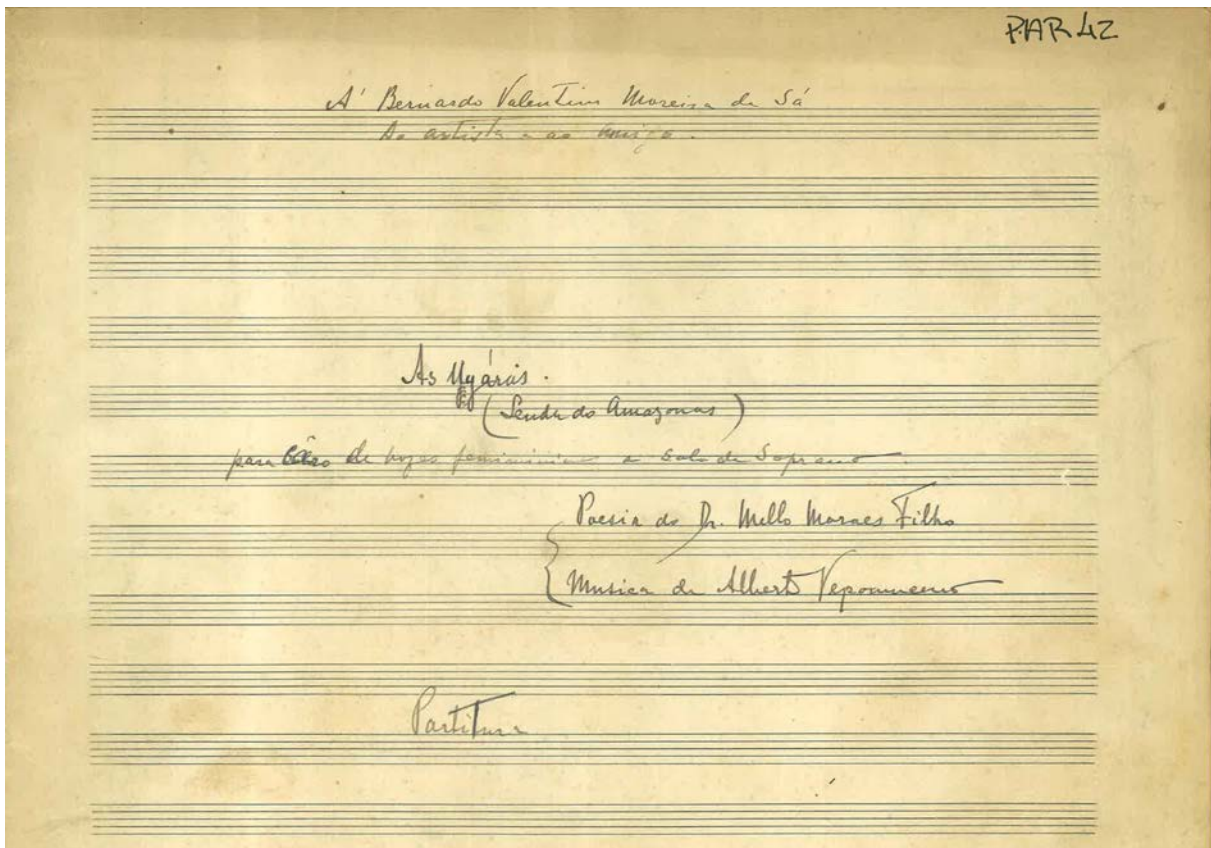 PAR 42
A' Bernardo Valentim Moreira de Sá
Ao artista e ao amigo.
As Uyáras.
(Lenda do Amazonas)
para côro de vozes femininas e solo de Soprano.
Poesia do Dr. Mello Moraes Filho
Musica de Alberto Nepomuceno
Partitura